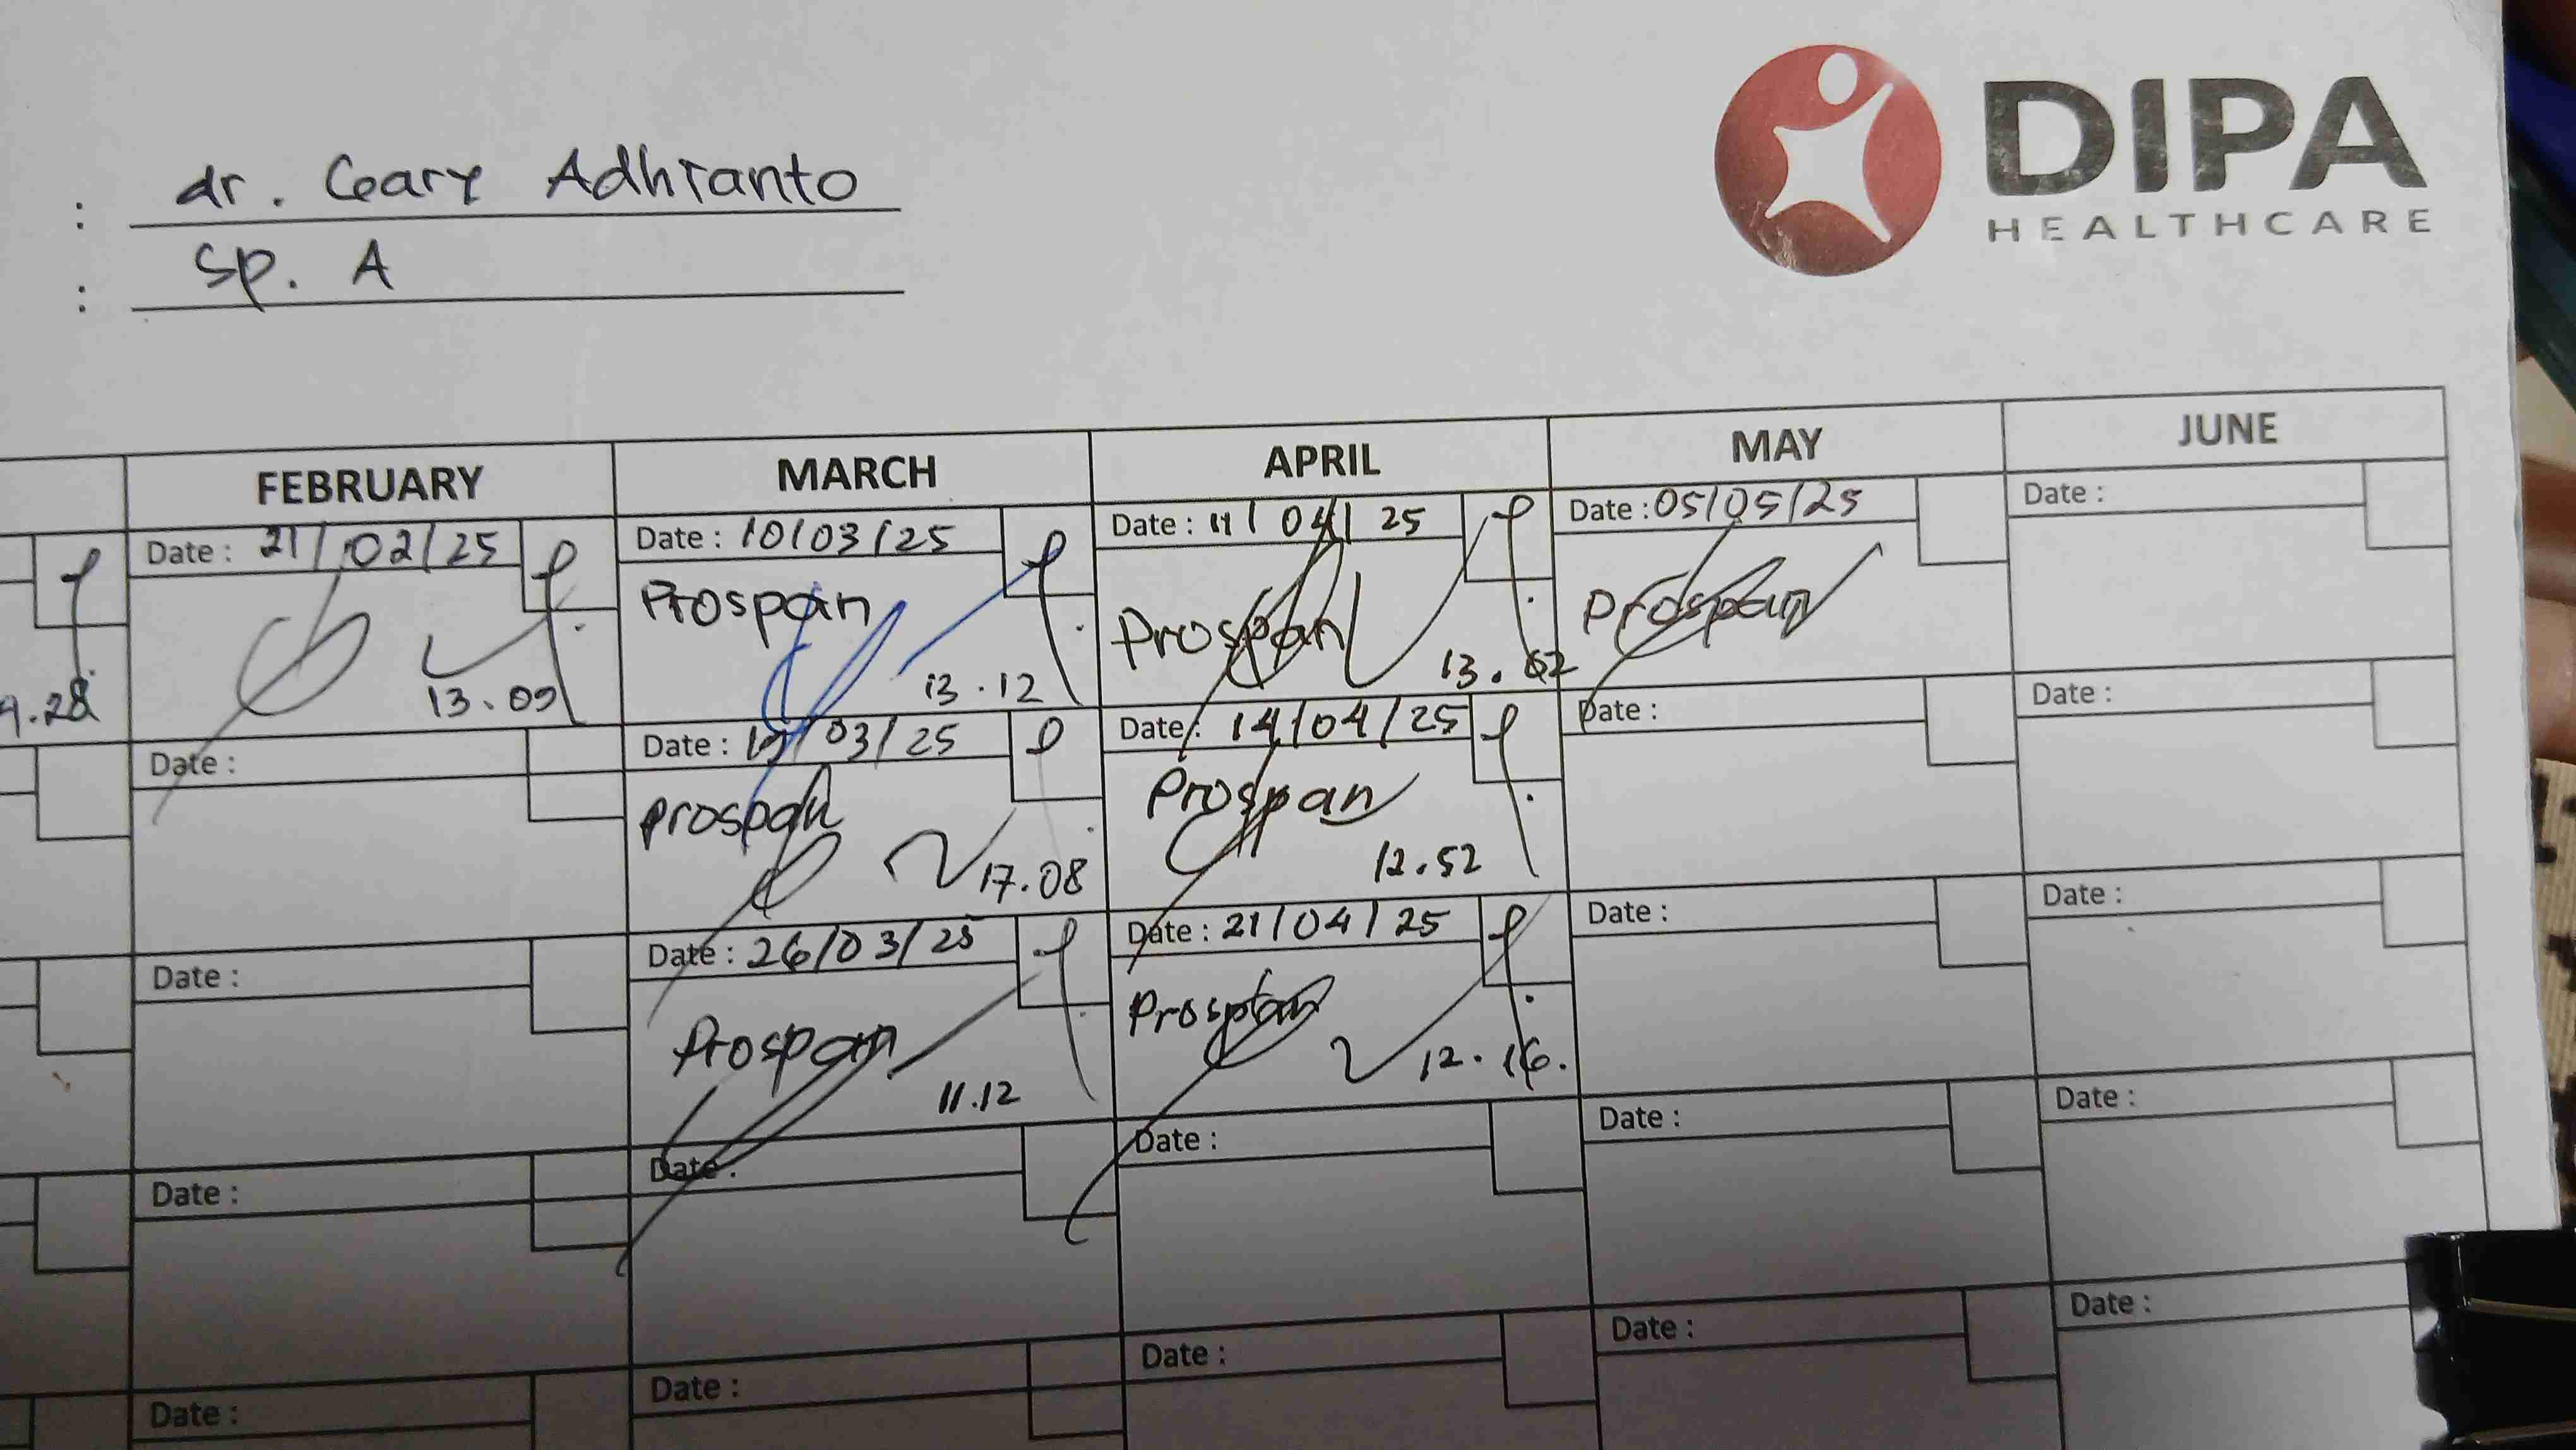 DIPA
HEALTHCARE
: dr. Geary Adhianto
: Sp. A
FEBRUARY MARCH APRIL MAY JUNE
Date : 21/02/25 Date : 10/03/25 Date : 11/04/25 Date : 05/05/25 Date :
Prospan Prospan Prospan
.28 13.09 13.12 13.02
Date : Date : /03/25 Date : 14/04/25 Date : Date :
prospan Prospan
17.08 12.52
Date : Date : 26/03/25 Date : 21/04/25 Date : Date :
Prospan Prospan
11.12 12.16.
Date : Date : Date : Date : Date :
Date : Date : Date : Date : Date :